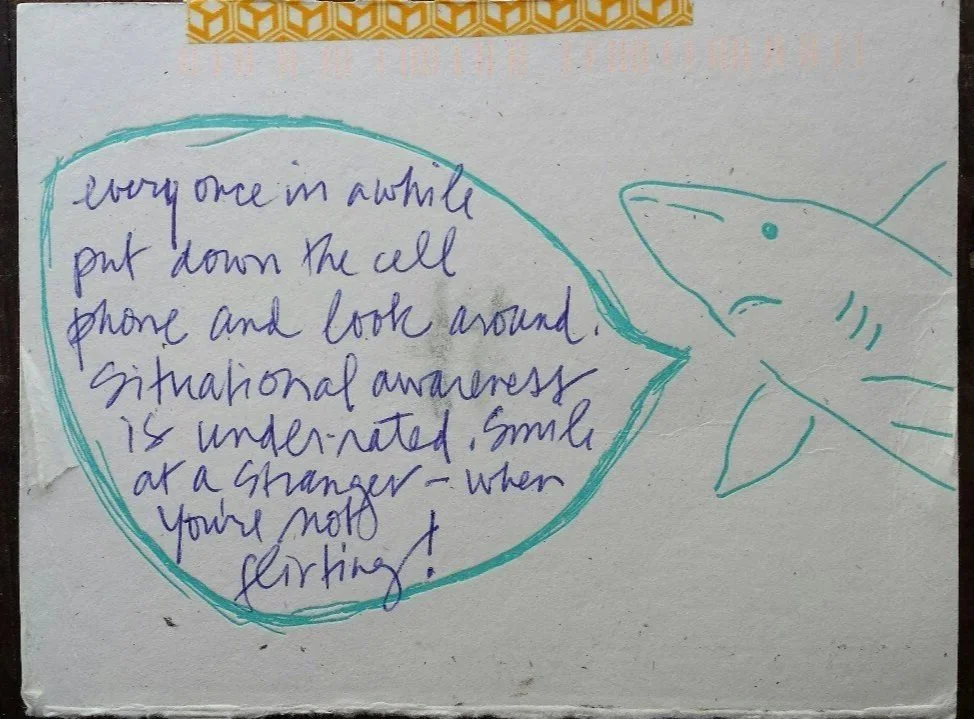 every once in awhile
put down the cell
phone and look around.
Situational awareness
is under-rated. Smile
at a stranger – when
you're not
flirting!